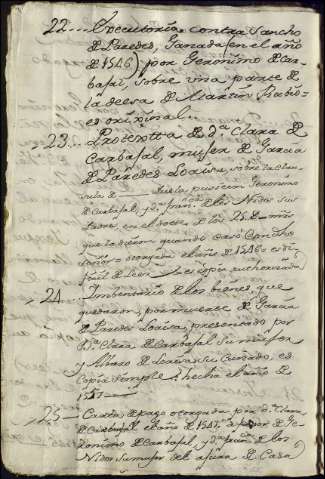 22... Executoria contra Sancho
de Paredes, Ganada (en el año
de 1546) por Geronimo de Car-
bajal, sobre una parte de
la deesa de Martin
es original.
23... Protexta de D.ª Clara de
Carbajal, mujer de Garcia
de Paredes Loaisa, sobre la clau-
sula de pusieron Geronimo
de Carbajal, y D.ª Fran.ca de los Nidos sus
Padres, en el docte de los 25
que la dieron quando casó con dho
otorgada el año de 1546
es copia authorizada
24... Imbentario de los bienes, que
quedaron, por muerte de Garcia
de Paredes Loaisa, presentado por
D.ª Clara de Carbajal su mujer
y Alvaro de Loaisa su Cuñado, es
Copia simple, hecha el año de
1547
25... Carta de pago otorgada por D.ª Clara
de Carbajal el año de 1547, a favor de Ge-
ronimo de Carbajal, y D.ª Fran.ca de los
Nidos su mujer del ajuar de Casa